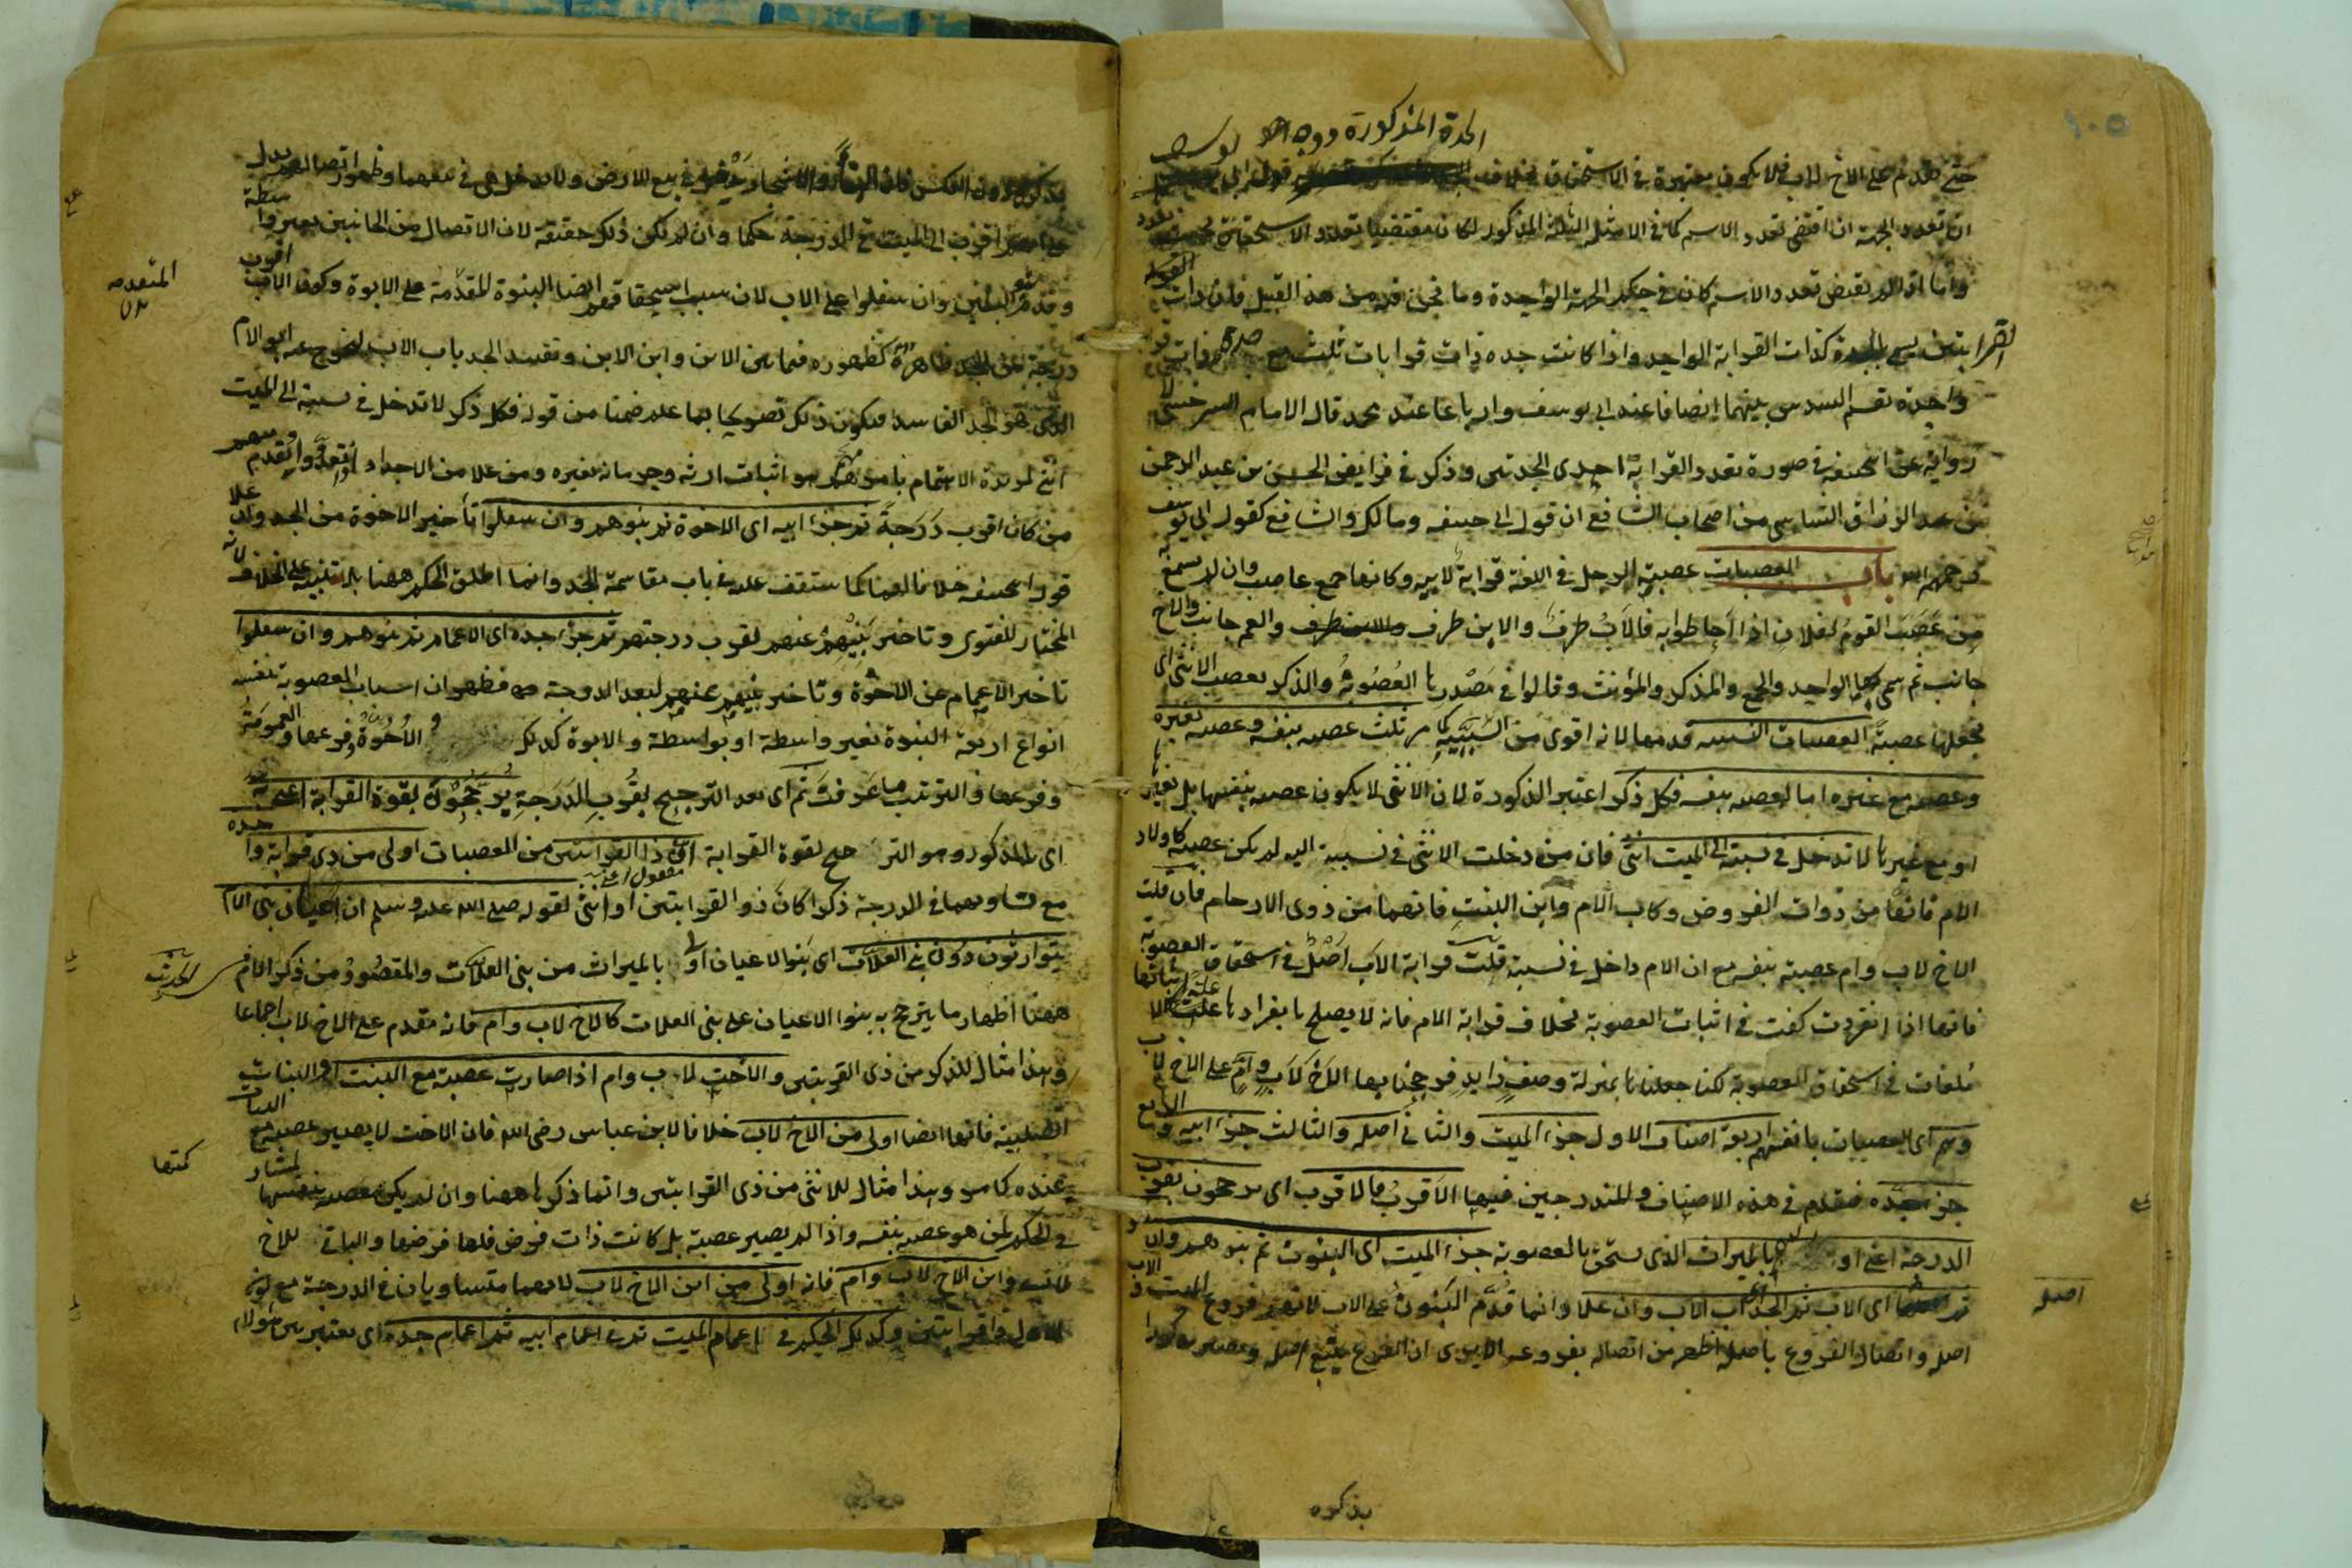 الجدة المذكورة ووجه
حتى تقدم على الاخ لاب فلا يكون معتبرة في الاستحقاق بخلاف قول ابى يوسف
ان تعدد الجهة ان اقتضى تعدد الاسم كما في الامثلة الثلثة المذكور لكان مقتضيا تعدد الاستحقاق
واما اذا لم يقتض تعدد الاسم كان في حكم الجهة الواحدة وما نحن فيه من هذا القبيل فان ذات
القرابتين يسمى جدة كذات القرابة الواحد واذا كانت جده ذات قرابات ثلث مع جدة ذات قرابة
واحدة تقسم السدس بينهما انصافا عند ابى يوسف وارباعا عند محمد قال الامام السرخسى لا
رواية عن ابى حنيفة في صورة تعدد القرابة احدى الجدتين وذكر في فرايض الحسن بن عبد الرحمن
بن عبد الرزاق الشاسى من اصحاب الشافع ان قول ابى حنيفه ومالك والشافع كقول ابى يوسف
رحمهم الله باب العصبات عصبة الرجل في اللغة قرابة لابيه وكانها جمع عاصب وان لم يسمع به
من عصب القوم لفلان اذا احاطوا به فالاب طرف والابن طرف والعم جانب والاخ
جانب ثم سمى بها الواحد والجمع والمذكر والمؤنث وقالوا في مصدرها العصوبة والذكر يعصب الانثى اى
يجعلها عصبة العصبات النسبيه قدمها لانه اقوى من السببية كما مر ثلث عصبه بنفسه وعصبه بغيره
وعصبه مع غيره اما العصبه بنفسه فكل ذكر اعتبر الذكورة لان الانثى لا يكون عصبه بنفسها بل بغيرها
او مع غيرها لا تدخل في نسبته الى الميت انثى فان من دخلت الانثى في نسبته اليه لم يكن عصبة كاولاد
الام فانها من ذوات الفروض وكاب الام وابن البنت فانهما من ذوى الارحام فان قلت
الاخ لاب وام عصبة بنفسه مع ان الام داخل في نسبته قلت قرابة الاب اصل في استحقاق العصوبة
فانها اذا انفردت كفت في اثبات العصوبة بخلاف قرابة الام فانه لا يصلح بانفرادها علة لاثباتها
ملغات في استحقاق العصوبة لكنا جعلناها بمنزلة وصف زايد فرجحنا بها الاخ لاب وام على الاخ لاب
وهم اى العصبات بانفسهم اربعة اصناف الاول جزء الميت والثانى اصله والثالث جزء ابيه والرابع
جزء جده فيقدم في هذه الاصناف والمندرجين فيها الاقرب فالاقرب اى يرجحون بقرب
الدرجة اعنى اولاهم بالميراث الذى يستحق بالعصوبة جزء الميت اى البنون ثم بنوهم وان
ثم اصله اى الاب ثم الجد اى اب الاب وان علا وانما قدم البنون على الاب لانهم فروع الميت والاب
اصله واتصال الفروع باصله اظهر من اتصاله بفروعه الا يرى ان الفرع يتبع اصله ويصير مذكورا
اصله
بذكره
بذكره دون العكس فان البناء والاشجار يدخل في بيع الارض ولا تدخل هى في بيعهما وظهور اتصالهم يدل
على انهم اقرب الى الميت في الدرجة حكما وان لم يكن ذلك حقيقة لان الاتصال من الجانبين بغير واسطة
وقدم بنو البنين وان سفلوا على الاب لان سبب استحقاقهم ايضا البنوة المقدمة على الابوة وكون الاب اقرب
درجة من الجد ظاهرة كظهوره فيما بين الابن وابن الابن وتقييد الجد باب الاب ليخرج عنه ابو الام
الذى هو الجد الفاسد فيكون ذلك تصريحا بما علم ضمنا من قوله فكل ذكر لا تدخل في نسبته الى الميت
انثى لمزيدة الاهتمام بما مر هو اثبات ارثه وحرمانه بغيره ومن علا من الاجداد ويقدم منهم
من كان اقرب درجة ثم جزء ابيه اى الاخوة ثم بنوهم وان سفلوا تأخير الاخوة من الجد وان علا
قول ابى حنيفه خلافا لهما كما ستقف عليه في باب مقاسمة الجد وانما اطلق الحكم ههنا بلا تنبيه على الخلاف لانه
المختار للفتوى وتاخير بنيهم عنهم لقرب درجتهم ثم جزء جده اى الاعمام ثم بنوهم وان سفلوا
تاخير الاعمام عن الاخوة وتاخير بنيهم عنهم لبعد الدرجة فظهر ان اسباب العصوبة بنفسه
انواع اربعة البنوة بغير واسطة او بواسطة والابوة كذلك والاخوة وفروعها والعمومة
وفروعها والترتيب ما عرفت ثم اى بعد الترجيح بقرب الدرجة يرجحون بقوة القرابة اعنى به
اى بالمذكور وهو الترجيح بقوة القرابة ان ذا القرابتين من العصبات اولى من ذى قرابة واحدة
مع تساويهما في الدرجة ذكرا كان ذو القرابتين او انثى لقوله صلى الله عليه وسلم ان اعيان بنى الام
يتوارثون دون بنى العلات اى بنوا الاعيان اولى بالميراث من بنى العلات والمقصود من ذكر الام
ههنا اظهار ما يترجح به بنوا الاعيان على بنى العلات كالاخ لاب وام فانه مقدم على الاخ لاب اجماعا
وهذا مثال للذكر من ذى القربتين والاخت لاب وام اذا صارت عصبة مع البنت او البنات
الصلبية فانها ايضا اولى من الاخ لاب خلافا لابن عباس رضى الله فان الاخت لا يصير عصبة مع البنات
عنده كما مر وهذا مثال للانثى من ذى القرابتين وانما ذكرها ههنا وان لم يكن عصبه بنفسها
في الحكم لمن هو عصبه بنفسه واذا لم يصير عصبة بل كانت ذات فرض فلها فرضها والباقى للاخ
لاب وابن الاخ لاب وام فانه اولى من ابن الاخ لاب لانهما متساويان في الدرجة مع كون
الاول ذا قرابتين وكذلك الحكم في اعمام الميت ثم في اعمام ابيه ثم اعمام جده اى يعتبر بين هؤلاء
المتقدمه